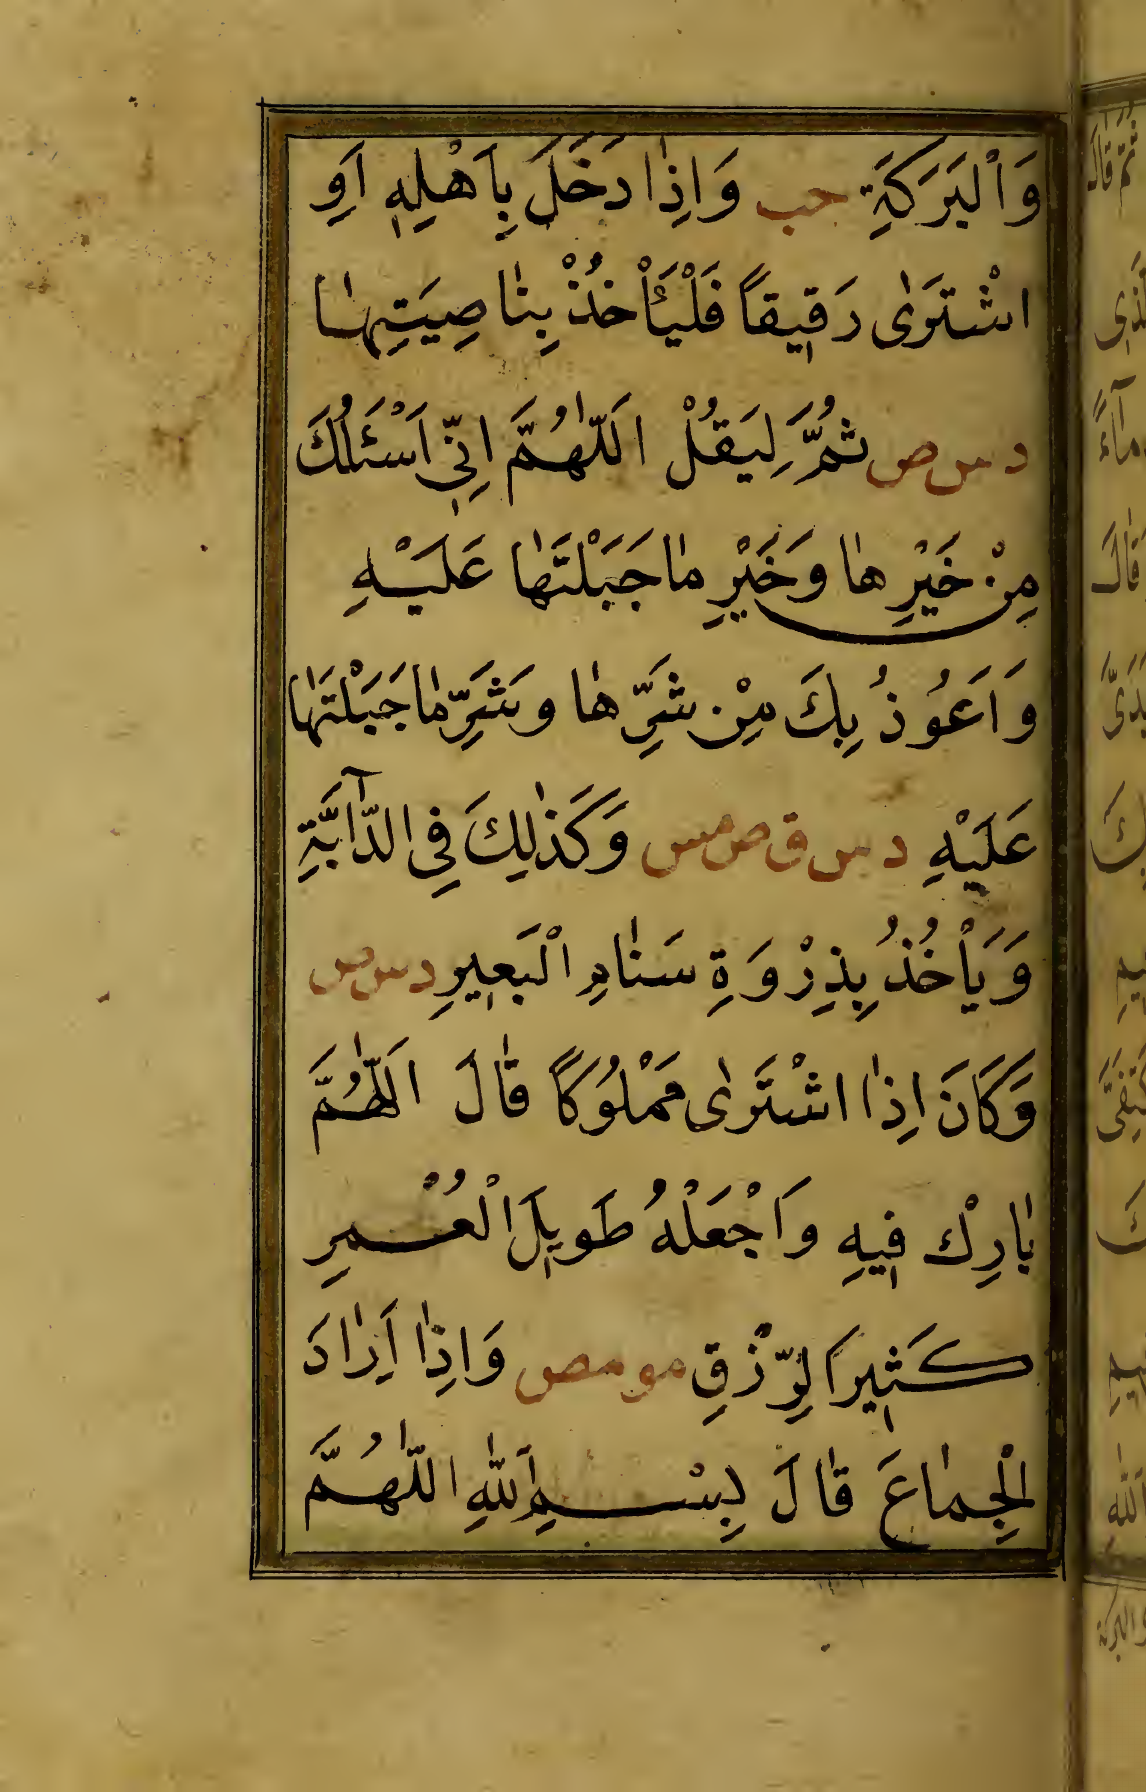 وَالْبَرَكَةِ حب وَاِذٰا دَخَلَ بِاَهْلِهِ اَوِ
اشْتَرٰى رَقِيقاً فَلْيَأْخُذْ بِنٰاصِيَتِهٰا
د س ص ثُمَّ لِيَقُلْ اَللّٰهُمَّ اِنِّي اَسْئَلُكَ
مِنْ خَيْرِ هٰا وَخَيْرِ مٰا جَبَلْتَهٰا عَلَيْهِ
وَاَعُوذُ بِكَ مِنْ شَرِّ هٰا وَشَرِّ مٰا جَبَلْتَهٰا
عَلَيْهِ د س ق ص مس وَكَذٰلِكَ فِي الدّٰآبَّةِ
وَيَأْخُذُ بِذِرْوَةِ سَنٰامِ الْبَعِيرِ د س ص
وَكَانَ اِذٰا اشْتَرٰى مَمْلُوكاً قٰالَ اَللّٰهُمَّ
بٰارِكْ فِيهِ وَاجْعَلْهُ طَوِيلَ الْعُمْرِ
كَثِيرَ الرِّزْقِ مو مص وَاِذٰا اَرٰادَ
الْجِمٰاعَ قٰالَ بِسْمِ اللّٰهِ اَللّٰهُمَّ